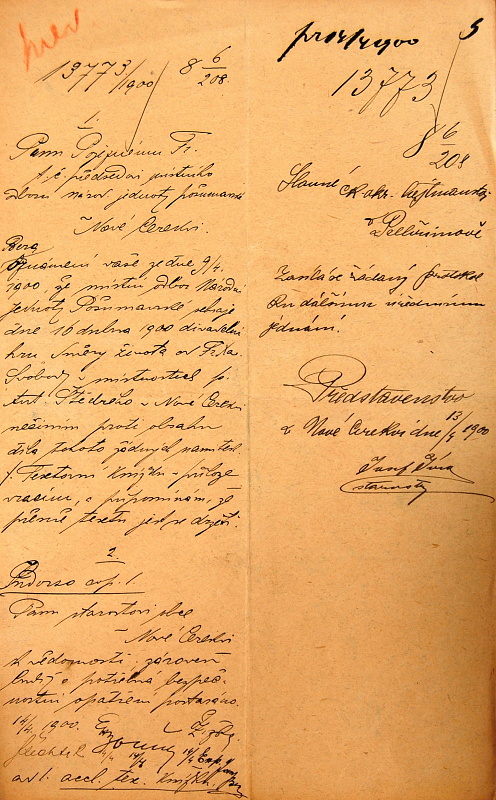 13773/1900 8 6/208.
1.
Panu Pojeznému Fr.
t. č. předsedovi místního
odboru národ. jednoty pošumavské
v Nové Cerekvi.
vaše ze dne 9/4
1900, že místní odbor Národní
jednoty Pošumavské sehraje
dne 16 dubna 1900 divadelní
hru Směry života od Fr. Xa.
Svobody v místnostech p.
Ant. Štědrého v Nové Cerekvi
nečiním proti obsahu
díla tohoto žádných námitek.
Textovní knížku - příloze
vracím, a připomínám, že
přesně textu jest se držeti.
2.
Indorso exp. 1.
Panu starostovi obce
v Nové Cerekvi
k vědomosti, zároveň
budiž o potřebná bezpeč-
nostní opatření postaráno.
14/4 1900.
ad 1. accl. tex. knížka.
pr 14/4 1900 5
13773
8 6/208
Slavné
ck. okr. hejtmanství
v Pelhřimově
Zasílá se žádaný protokol
ku dalšímu úřednímu
jednání.
Představenstvo
v Nové Cerekvi dne 13/4 1900
starosta